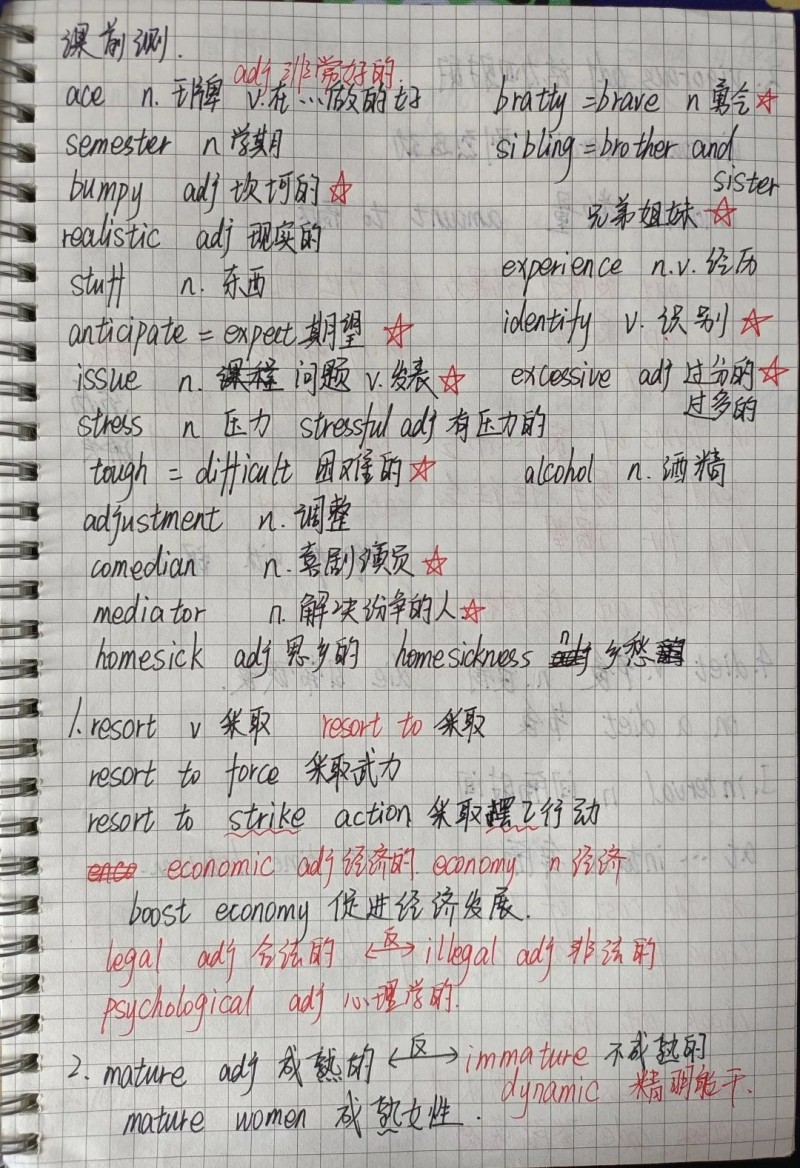 课前测.
adj 非常好的
ace n. 王牌 v.在…做的好
bratty = brave n 勇气☆
semester n 学期
sibling = brother and sister
兄弟姐妹☆
bumpy adj 坎坷的☆
realistic adj 现实的
experience n.v. 经历
stuff n. 东西
identify v. 识别☆
anticipate = expect 期望☆
issue n. 课程 问题 v.发表☆
excessive adj 过分的☆
过多的
stress n 压力 stressful adj 有压力的
tough = difficult 困难的☆
alcohol n. 酒精
adjustment n. 调整
comedian n. 喜剧演员☆
mediator n. 解决纷争的人☆
homesick adj 思乡的 homesickness n 乡愁
1. resort v 采取 resort to 采取
resort to force 采取武力
resort to strike action 采取摆工行动
economic adj 经济的. economy n 经济
boost economy 促进经济发展.
legal adj 合法的 ←反→ illegal adj 非法的
psychological adj 心理学的.
2. mature adj 成熟的 ←反→ immature 不成熟的
dynamic 精明能干.
mature women 成熟女性.